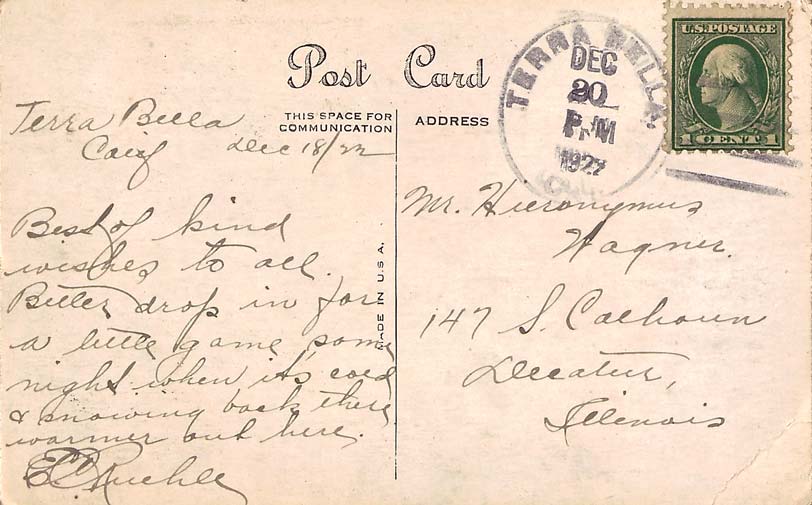 Post Card
THIS SPACE FOR
COMMUNICATION
ADDRESS
TERRA BELLA,
DEC
20
P.M
1922
CAL.
U.S. POSTAGE
1 CENT 1
Terra Bella
Calif Dec 18/22
Best of kind
wishes to all.
Better drop in for
a little game some
night when it's cold
& snowing back there
warmer out here.
MADE IN U.S.A.
Mr. Hieronymus
Wagner.
147 S. Calhoun
Decatur,
Illinois